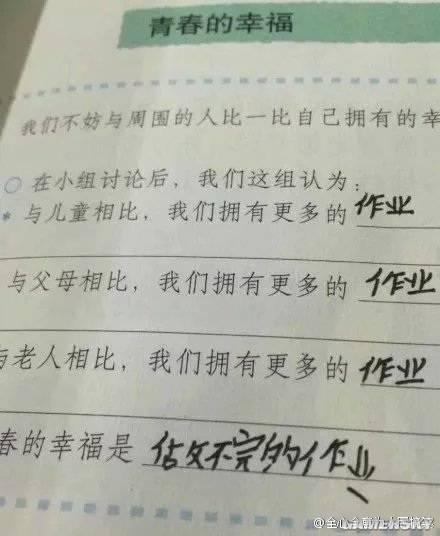 青春的幸福
我们不妨与周围的人比一比自己拥有的幸
○ 在小组讨论后，我们这组认为：
* 与儿童相比，我们拥有更多的 作业
与父母相比，我们拥有更多的 作业
与老人相比，我们拥有更多的 作业
春的幸福是 估文不完的作业